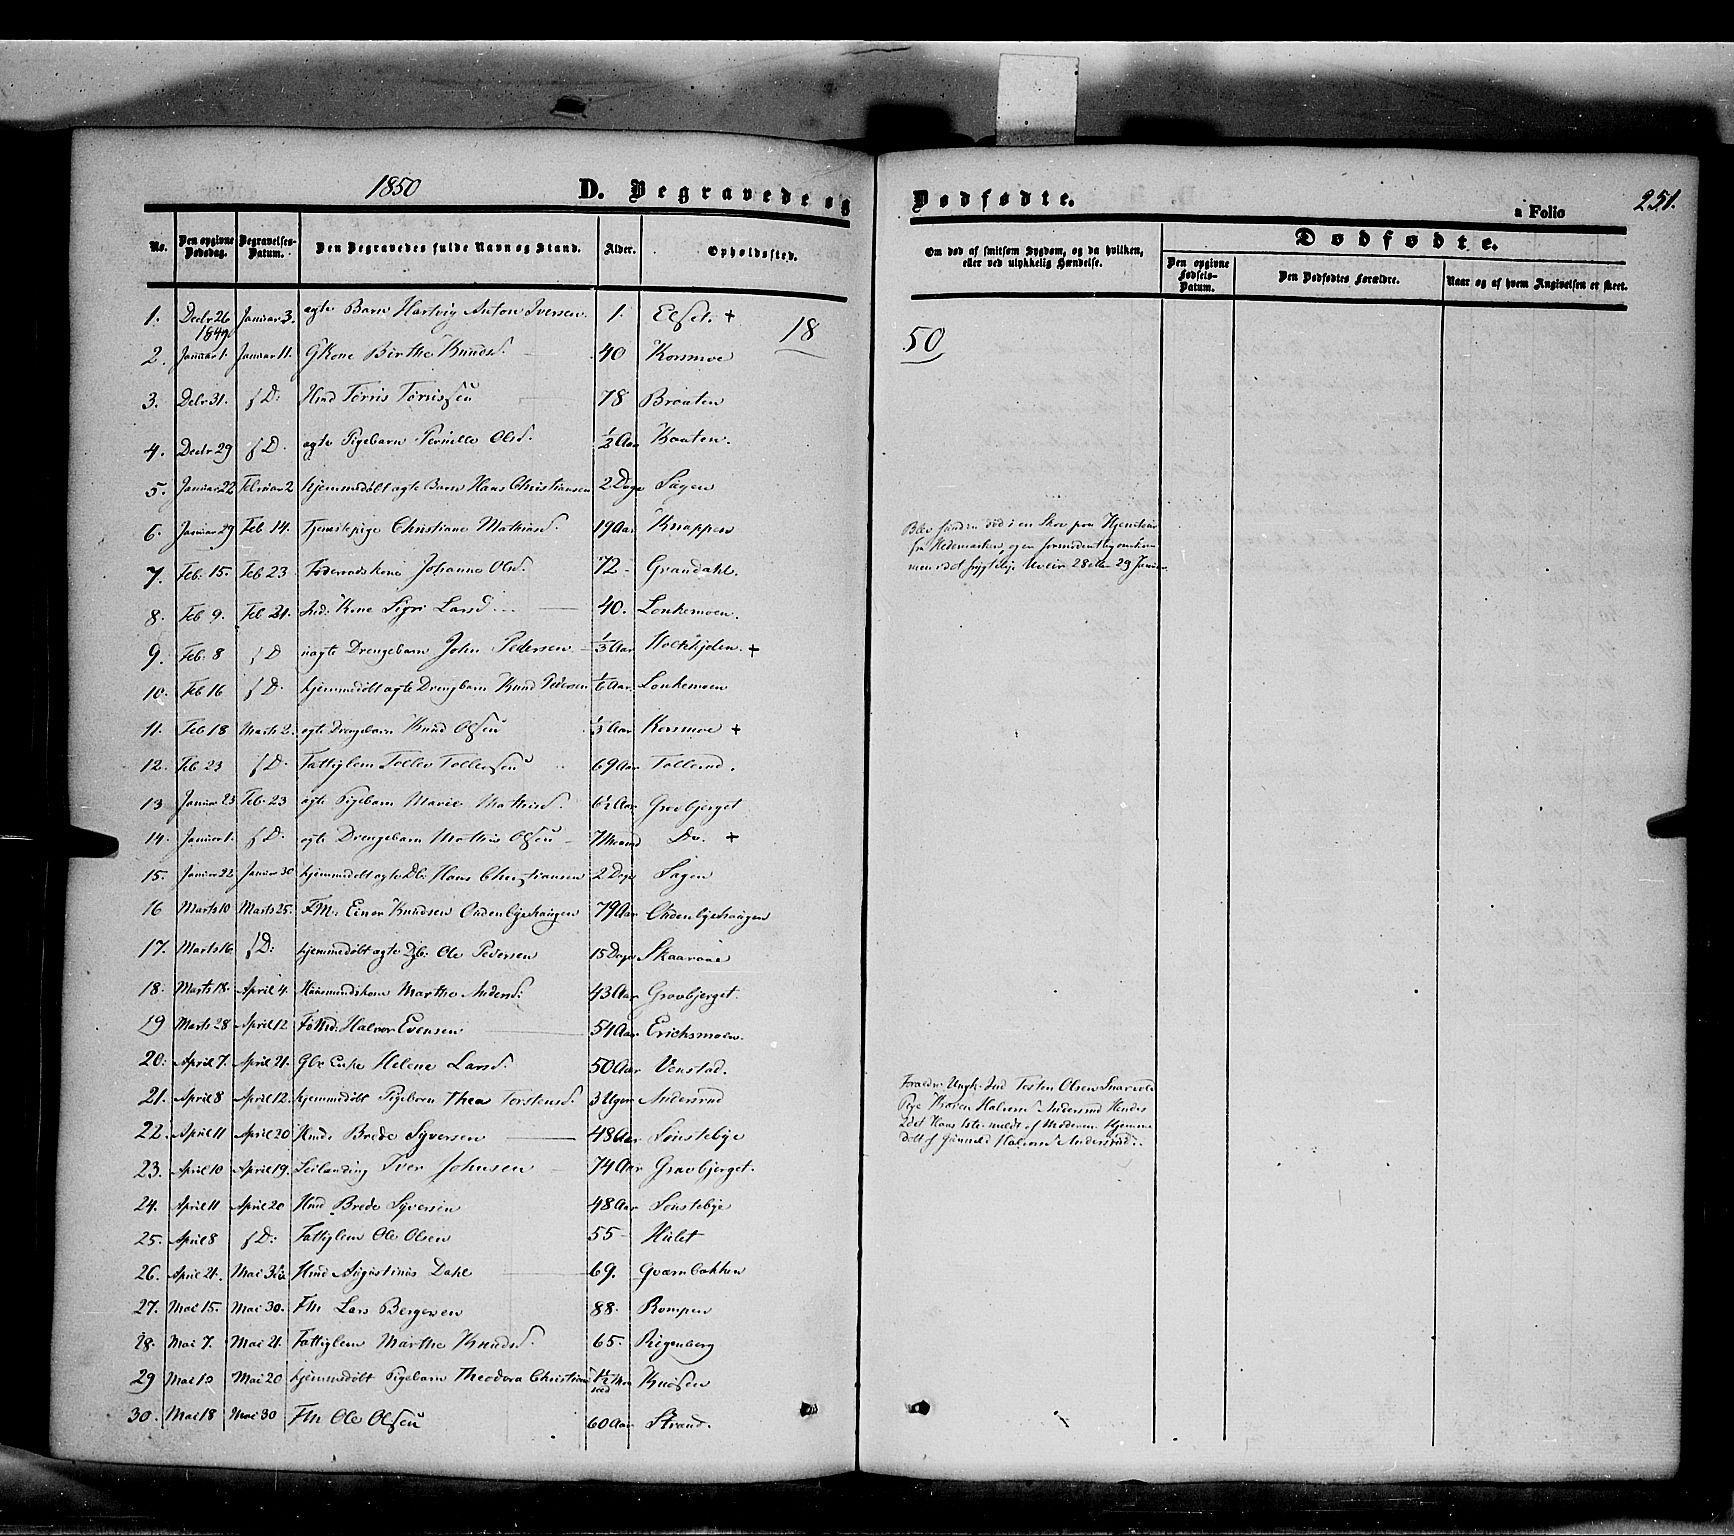 1850 D. Begravede og Dødfødte. a Folio 251.
No. Den opgivne Dødsdag. Begravelses-Datum. Den Begravedes fulde Navn og Stand. Alder. Opholdssted.
Om død af smitsom Sygdom, og da hvilken, eller ved ulykkelig Hændelse. Dødfødte. Den opgivne Fødsels-Datum. Den Dødfødtes Forældre. Naar og af hvem Angivelsen er skeet.
18 50
1. Decbr 26 1849 Januar 3. ægte Barn Hartvig Anton Iversen. 1. Elset. +
2. Januar 1. Januar 11. GKone Birthe Knudsd. 40 Korsmoe
3. Decbr 31. s D: Hmd Tørris Tørrissen 78 Braaten
4. Decbr 29 s D. ægte Pigebarn Pernille Olsd. ½ Aar Braaten.
5. Januar 22 Februar 2 hjemmedøbt ægte Barn Hans Christiansen 2 Dage Sagen
6. Januar 29 Feb 14. Tjenestepige Christiane Mathisd. 19 Aar Knappen
7. Feb: 15. Feb 23. Føderaadskone Johanne Olsd. 72 - Grandahl.
8. Feb 9. Feb 21. Ind: Kone Sigri Larsd. 40. Lonkemoen.
9. Feb: 8 s D uægte Drengebarn John Pedersen ⅓ Aar +
10. Feb 16 s D. hjemmedøbt ægte Drengbarn Knud Pedersen Aar Lonkemoen
11. Feb 18 Marts 2. ægte Drengebarn Knud Olsen Aar Korsmoe +
12. Feb 23 s D. Fattiglem Tollev Tollevsen 69 Aar Tollerud.
13. Januar 23 Feb. 23 ægte Pigebarn Marie Mathisd. 6½ Aar Gravbjerget
14. Januar 1. s D. ægte Drengebarn Mathis Olsen 7 Maaned Do. +
15. Januar 22 Januar 30 hjemmedøbt ægte Db: Hans Christiansen 2 Dage Sagen
16 Marts 10 Marts 25. FM: Einer Knudsen 79 Aar
17. Marts 16 s D: hjemmedøbt ægte Dgb: Ole Pedersen 15 Dage
18. Marts 18. April 4. Huusmandskone Marthe Andersd: 43 Aar Gravbjerget.
19 Marts 28 April 12 Halvor Evensen 54 Aar Erichsmoen.
20: April 7. April 21. Gbr Enke Helene Larsd. 50 Aar Venstad.
21. April 8 April 12. hjemmedøbt Pigebarn Thea Torstensd. 3 Uger Andersrud
22. April 11 April 20 Hmd: Brede Syversen 48 Aar Sønstebye
23. April 10 April 19. Leilænding Iver Johnsen 74 Aar Gravbjerget.
24. April 11 April 20 Hmd Brede Syversen 48 Aar Sønstebye
25. April 8 s D: Fattiglem Ole Olsen 55 - Hulet
26. April 21. Mai Hmd Augustinus Dahl 69. Qværnbakken
27. Mai 15. Mai 30. FM Lars Bergersen 88. Rompen
28. Mai 7. Mai 21. Fattiglem Marthe Knudsd. 65. Rigenberg
29 Mai 10 Mai 20 hjemmedøbt Pigebarn Theodora 1½ Maaned Knøsen
30. Mai 18 Mai 30 FM Ole Olsen 60 Aar Strand.
Blev funden død i en Skov paa Hjemturen
fra Hedemarken, og er formodentlig omkom-
men i det frygtelige Uveir 28 eller 29 Januar
Forældre: Ungk. Ind Torsten Olsen
Pige Karen Halvorsd. Andersrud Hendes
2det Hans 1ste. meldt af Moderen. Hjemme-
døbt af Gunnild Halvorsd. Andersrud.